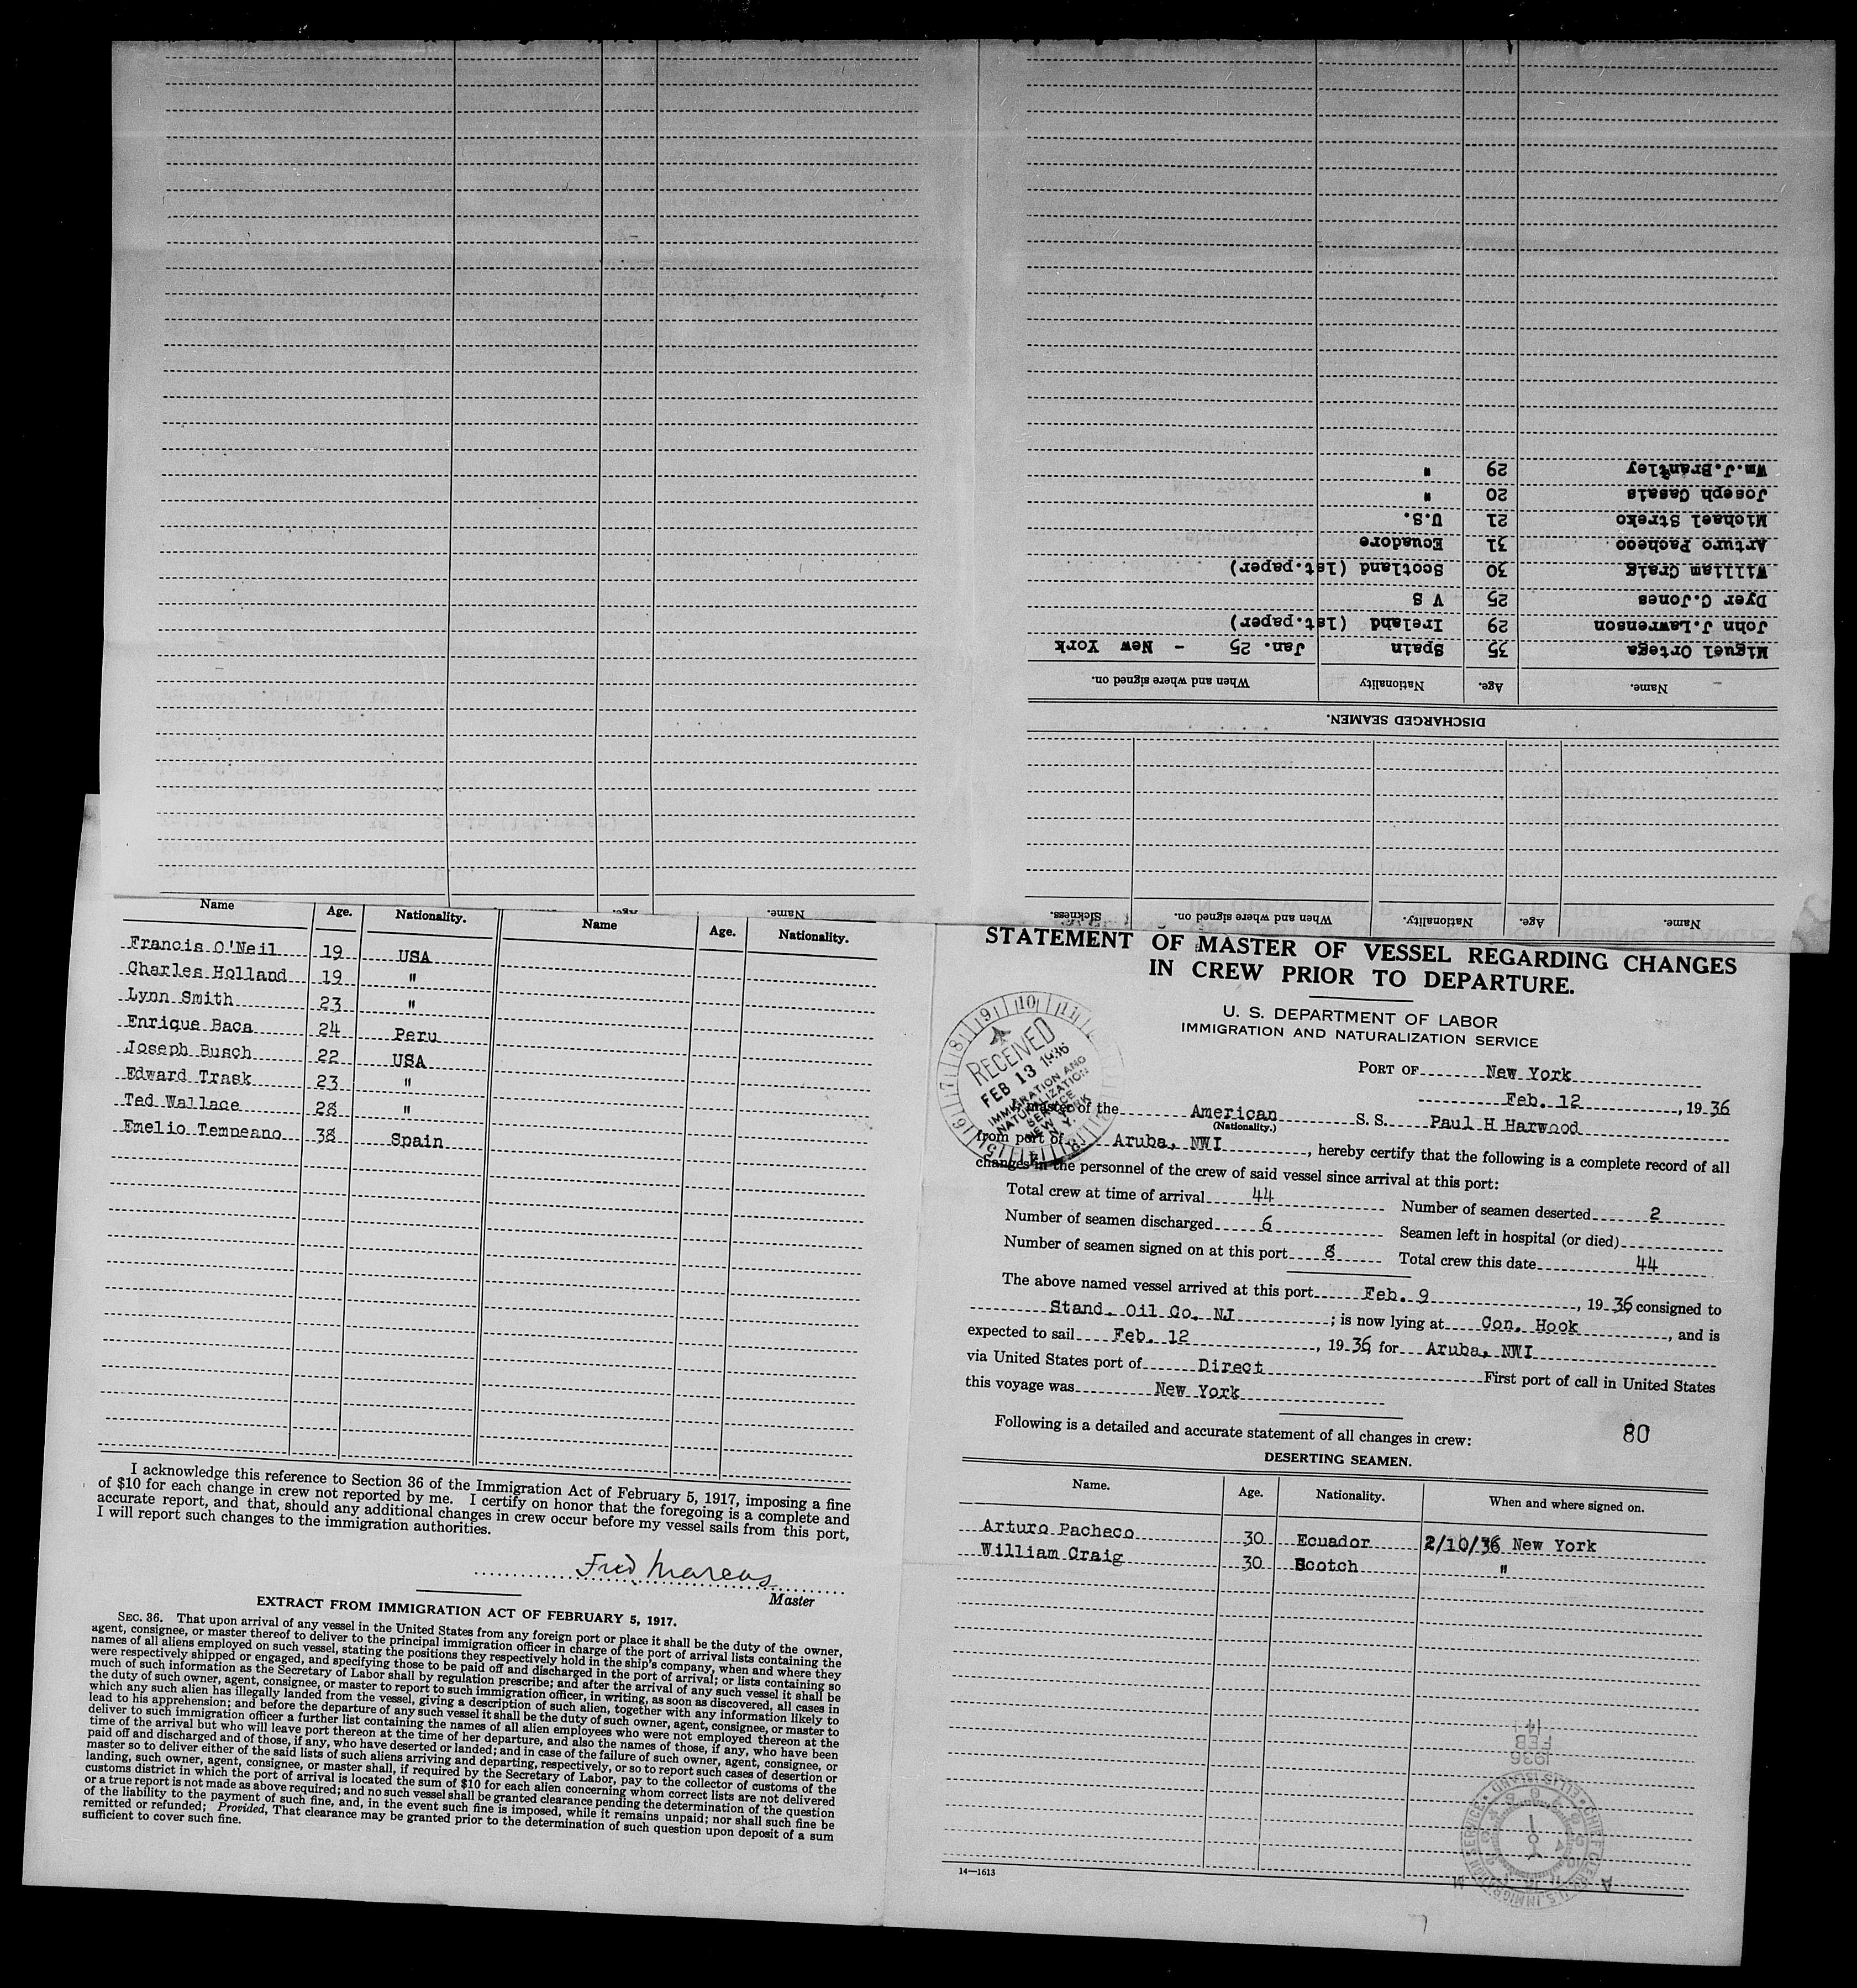 Name. Age. Nationality. When and where signed on. Sickness.
DISCHARGED SEAMEN.
Name. Age. Nationality When and where signed on.
Miguel Ortega 35 Spain Jan. 25 - New York
John J.Lawrenson 29 Ireland (1st.paper)
Dyer C.Jones 25 V S
William Craig 30 Scotland (1st.paper)
Arturo Pacheco 31 Ecuadore
Michael Streko 21 U.S.
Joseph Casais 20 "
Wm.J.Brantley 29 "
Name Age. Nationality. Name Age. Nationality.
Francis O'Neil 19 USA
Charles Holland 19 "
Lynn Smith 23 "
Enrique Baca 24 Peru
Joseph Busch 22 USA
Edward Trask 23 "
Ted Wallace 28 "
Emelio Tempeano 38 Spain
I acknowledge this reference to Section 36 of the Immigration Act of February 5, 1917, imposing a fine
of $10 for each change in crew not reported by me. I certify on honor that the foregoing is a complete and
accurate report, and that, should any additional changes in crew occur before my vessel sails from this port,
I will report such changes to the immigration authorities.
Fred Marcus
Master
EXTRACT FROM IMMIGRATION ACT OF FEBRUARY 5, 1917.
SEC. 36. That upon arrival of any vessel in the United States from any foreign port or place it shall be the duty of the owner,
agent, consignee, or master thereof to deliver to the principal immigration officer in charge of the port of arrival lists containing the
names of all aliens employed on such vessel, stating the positions they respectively hold in the ship's company, when and where they
were respectively shipped or engaged, and specifying those to be paid off and discharged in the port of arrival; or lists containing so
much of such information as the Secretary of Labor shall by regulation prescribe; and after the arrival of any such vessel it shall be
the duty of such owner, agent, consignee, or master to report to such immigration officer, in writing, as soon as discovered, all cases in
which any such alien has illegally landed from the vessel, giving a description of such alien, together with any information likely to
lead to his apprehension; and before the departure of any such vessel it shall be the duty of such owner, agent, consignee, or master to
deliver to such immigration officer a further list containing the names of all alien employees who were not employed thereon at the
time of the arrival but who will leave port thereon at the time of her departure, and also the names of those, if any, who have been
paid off and discharged and of those, if any, who have deserted or landed; and in case of the failure of such owner, agent, consignee, or
master so to deliver either of the said lists of such aliens arriving and departing, respectively, or so to report such cases of desertion or
landing, such owner, agent, consignee, or master shall, if required by the Secretary of Labor, pay to the collector of customs of the
customs district in which the port of arrival is located the sum of $10 for each alien concerning whom correct lists are not delivered
or a true report is not made as above required; and no such vessel shall be granted clearance pending the determination of the question
of the liability to the payment of such fine, and, in the event such fine is imposed, while it remains unpaid; nor shall such fine be
remitted or refunded; Provided, That clearance may be granted prior to the determination of such question upon deposit of a sum
sufficient to cover such fine.
STATEMENT OF MASTER OF VESSEL REGARDING CHANGES
IN CREW PRIOR TO DEPARTURE.
U. S. DEPARTMENT OF LABOR
IMMIGRATION AND NATURALIZATION SERVICE
RECEIVED
FEB 13 1936
IMMIGRATION AND
NATURALIZATION
SERVICE
NEW YORK
N. Y.
PORT OF New York
Feb. 12, 1936
master of the American S. S. Paul H Harwood
(Nationality.)
from port of Aruba, NWI, hereby certify that the following is a complete record of all
changes in the personnel of the crew of said vessel since arrival at this port:
Total crew at time of arrival 44 Number of seamen deserted 2
Number of seamen discharged 6 Seamen left in hospital (or died)
Number of seamen signed on at this port 8 Total crew this date 44
The above named vessel arrived at this port Feb. 9, 1936 consigned to
Stand. Oil Co. NJ; is now lying at Con. Hook, and is
expected to sail Feb. 12, 1936 for Aruba, NWI
via United States port of Direct First port of call in United States
this voyage was New York
Following is a detailed and accurate statement of all changes in crew: 80
DESERTING SEAMEN.
Name. Age. Nationality. When and where signed on.
Arturo Pacheco 30 Ecuador 2/10/36 New York
William Craig 30 Scotch "
14
FEB
1936
14—1613